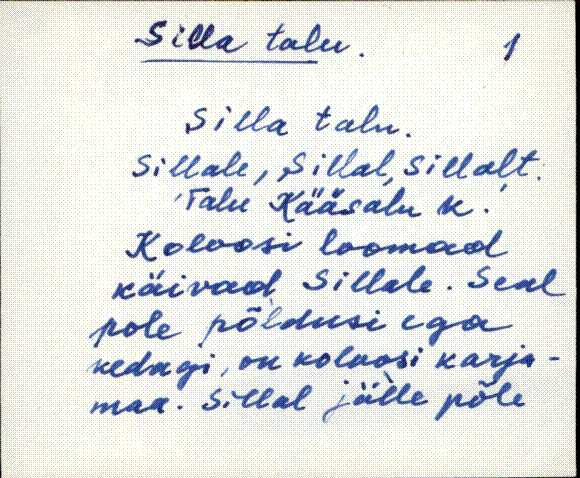 Silla talu.
1
Silla talu.
Sillale, Sillal, Sillalt.
Talu Kääsalu k.
Koloosi loomad
käivad Sillale. Seal
pole põldusi ega
kedagi, on koloosi karja-
maa. Sillal jälle põle